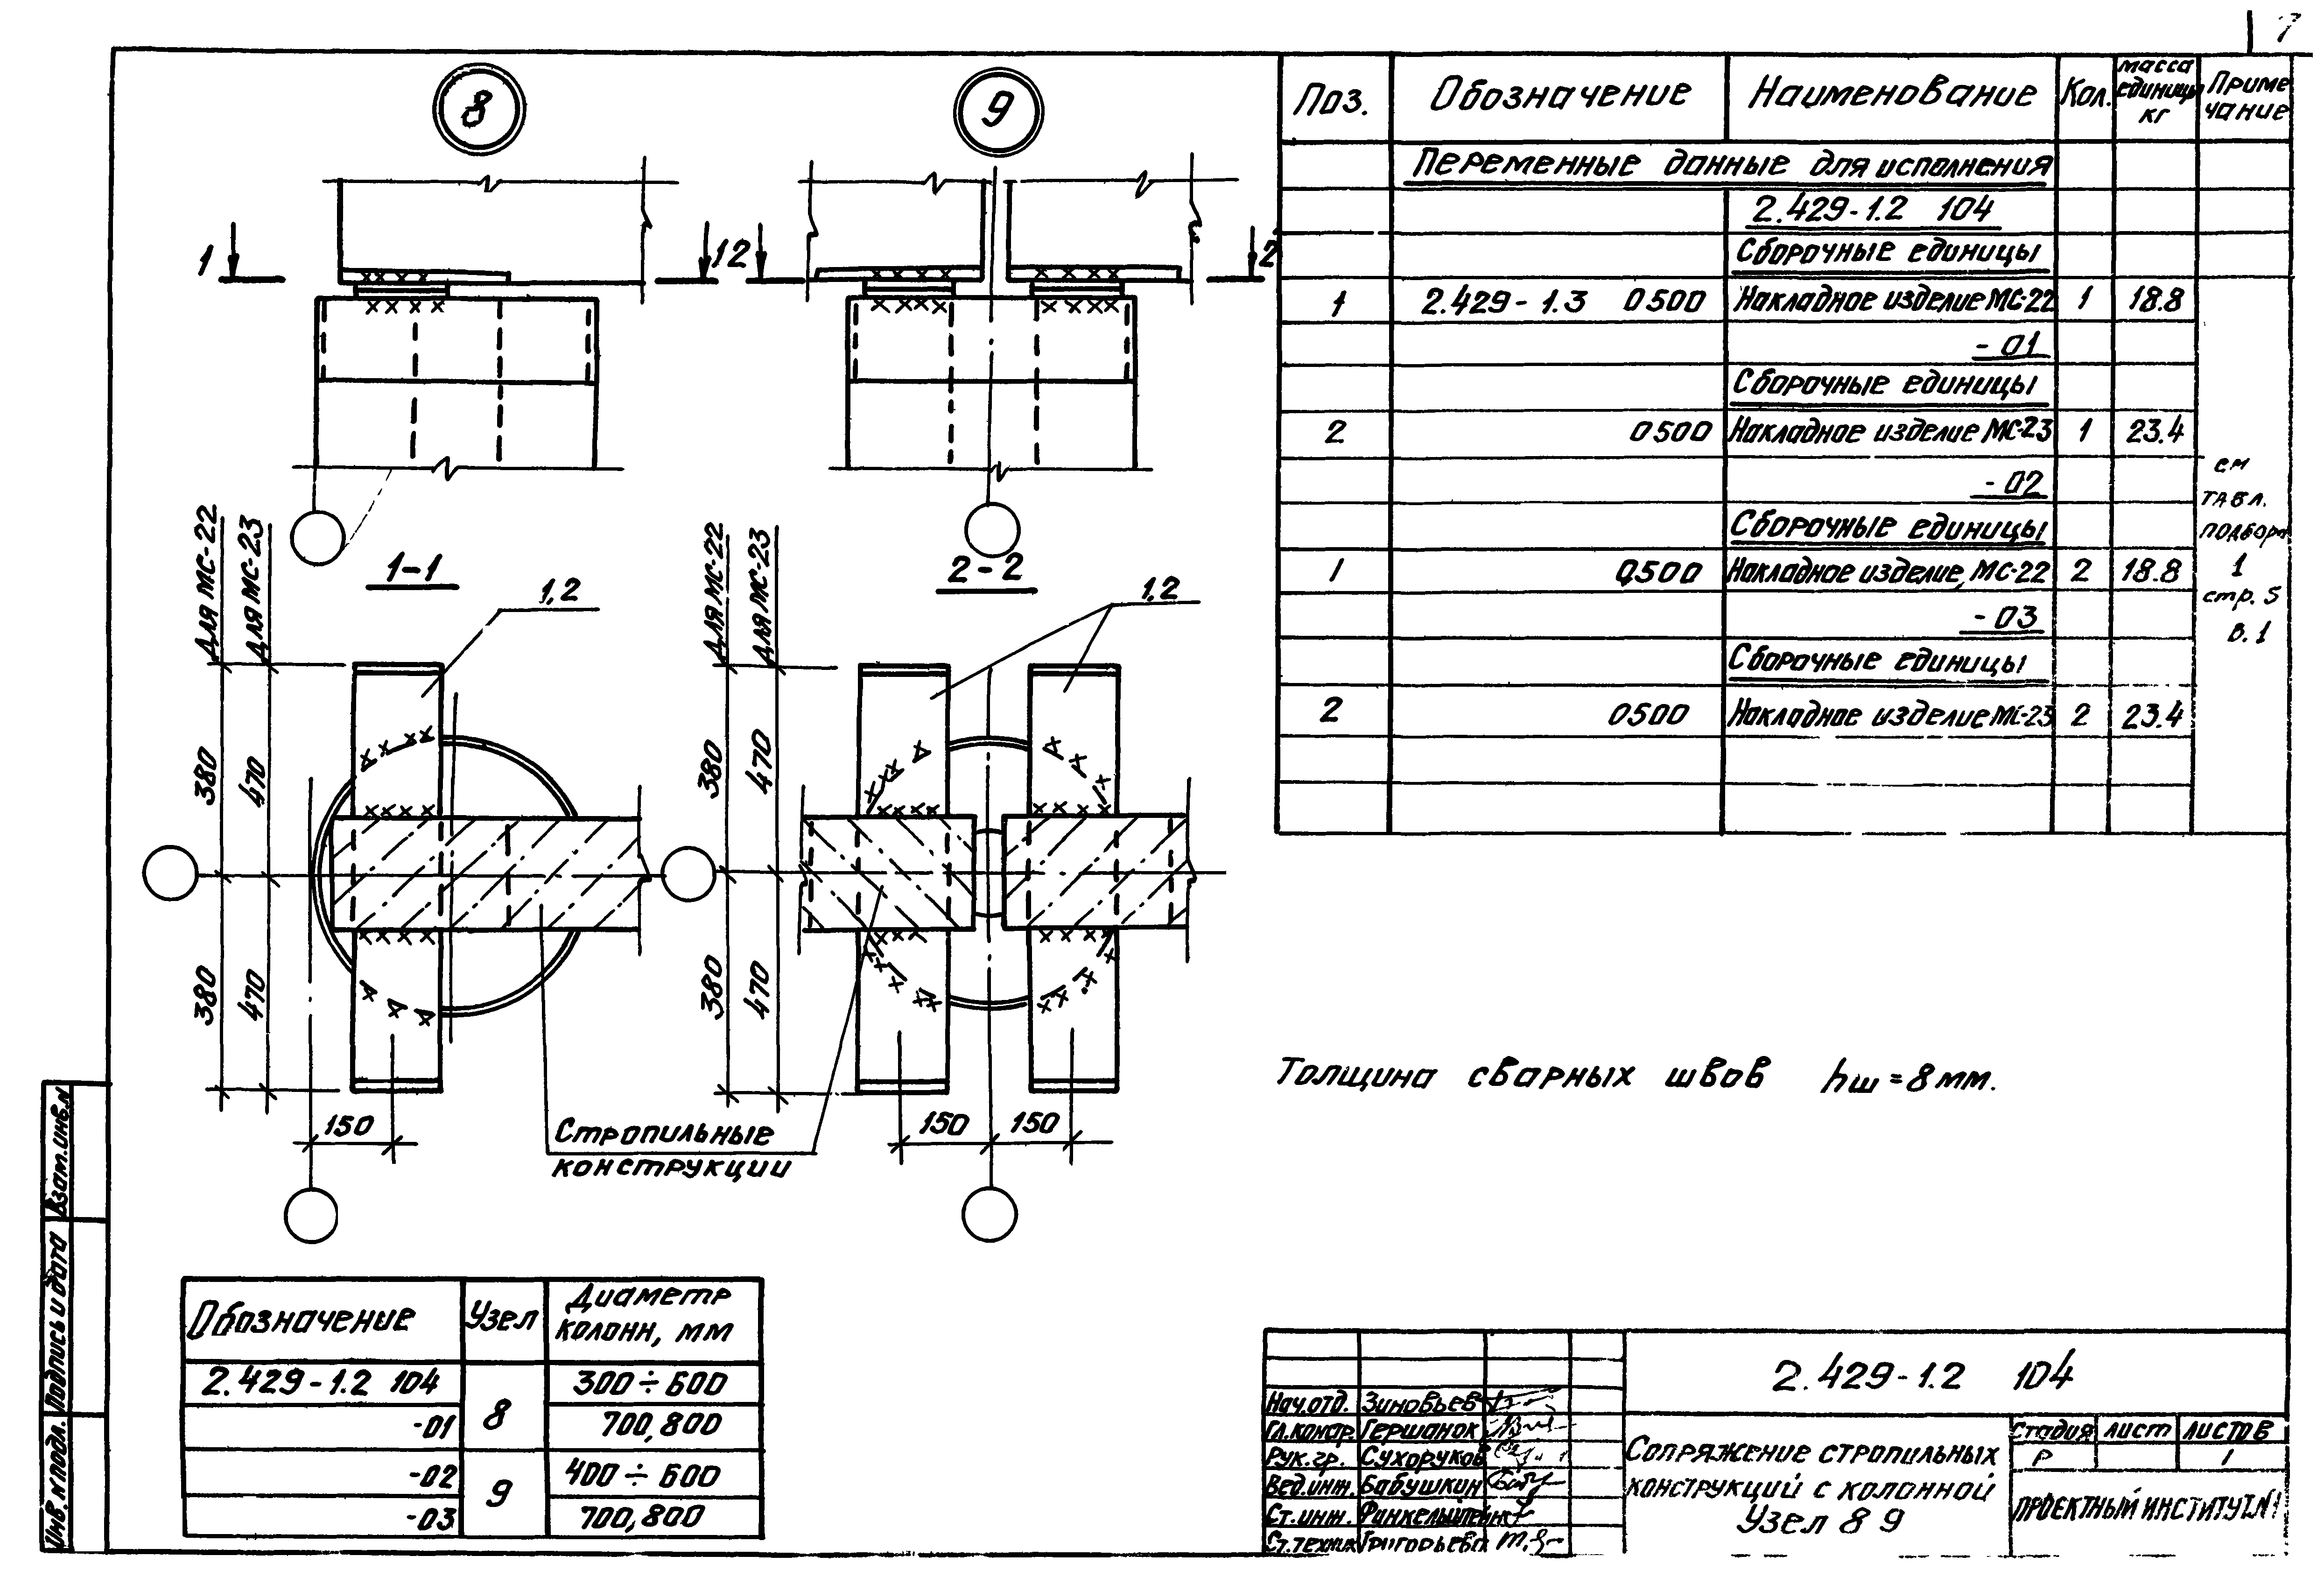 7
8
9
1
1
2
2
1-1
2-2
Для МС-22
Для МС-23
Для МС-22
Для МС-23
1,2
1,2
380
470
380
470
380
470
380
470
150
150
150
Стропильные
конструкции
Поз.
Обозначение
Наименование
Кол.
масса единицы кг
Приме чание
Переменные данные для исполнения
2.429-1.2 104
Сборочные единицы
1 2.429-1.3 0500 Накладное изделие МС-22 1 18.8
-01
Сборочные единицы
2 0500 Накладное изделие МС-23 1 23.4
-02
Сборочные единицы
1 0500 Накладное изделие МС-22 2 18.8
-03
Сборочные единицы
2 0500 Накладное изделие МС-23 2 23.4
см
табл.
подбора
1
стр. 5
в. 1
Толщина сварных швов hш = 8 мм.
Обозначение Узел Диаметр колонн, мм
2.429-1.2 104 8 300÷600
-01 700,800
-02 9 400÷600
-03 700,800
2.429-1.2 104
Нач.отд. Зиновьев
Гл.констр. Гершанок
Рук.гр. Сухоруков
Вед.инж. Бабушкин
Ст.инж. Финкельштейн
Ст.техник Григорьева
Сопряжение стропильных
конструкций с колонной
Узел 8 9
Стадия Лист Листов
Р 1
Проектный институт N1
Взам.инв.N
Подпись и дата
Инв.N подл.